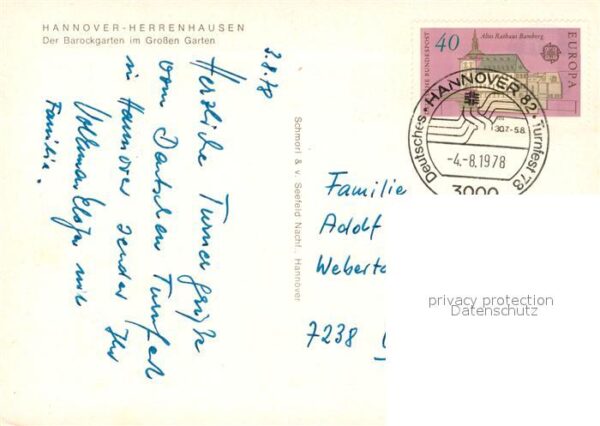 HANNOVER-HERRENHAUSEN
Der Barockgarten im Großen Garten
3.8.78
Herzliche Turnergrüße
vom Deutschen Turnfest
in Hannover sendet Ihr
Volkmar mit
Familie.
Schmorl & v. Seefeld Nachf., Hannover
40
Altes Rathaus Bamberg
EUROPA
BUNDESPOST
Deutsches Turnfest '78
HANNOVER 82
30.7.-5.8.
-4.-8.1978
3000
Familie
Adolf
7238
privacy protection
Datenschutz